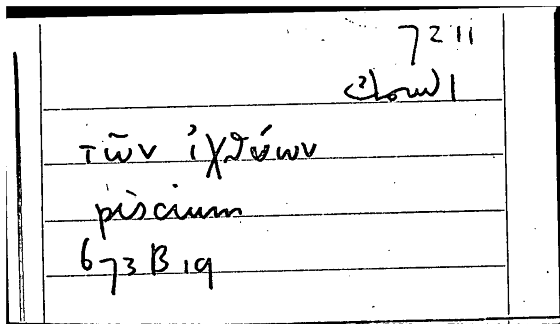 7211
τῶν ἰχθύων
piscium
673 B 19